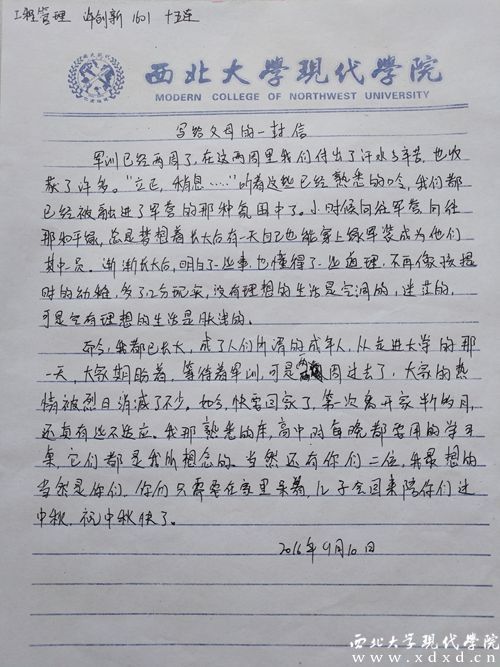 工程管理 许创新 1601 十五连
西北大學現代學院
MODERN COLLEGE OF NORTHWEST UNIVERSITY
写给父母的一封信
军训已经两周了,在这两周里我们付出了汗水与辛苦,也收
获了许多。“立正,稍息……”听着这些已经熟悉的口令,我们都
已经被融进了军营的那种氛围中了。小时候向往军营向往
那和平绿,总是梦想着长大后有一天自己也能穿上绿军装成为他们
其中一员。渐渐长大后,明白了一些事,也懂得了一些道理,不再像孩提
时的幼稚,多了一分现实,没有理想的生活是空洞的,迷茫的,
可是空有理想的生活是肤浅的。
如今,我都已长大,成了人们所谓的成年人,从走进大学的那
一天,大家期盼着,等待着军训,可是两周过去了,大家的热
情被烈日消减了不少。如今,快要回家了,第一次离开家半个月,
还真有些不适应。我那熟悉的床,高中时每晚都要用的学习
桌,它们都是我所想念的。当然还有你们二位,我最想的
当然是你们,你们只需要在家里呆着,儿子会回来陪你们过
中秋,祝中秋快了。
2016年9月10日
西北大学现代学院
www.xdxd.cn